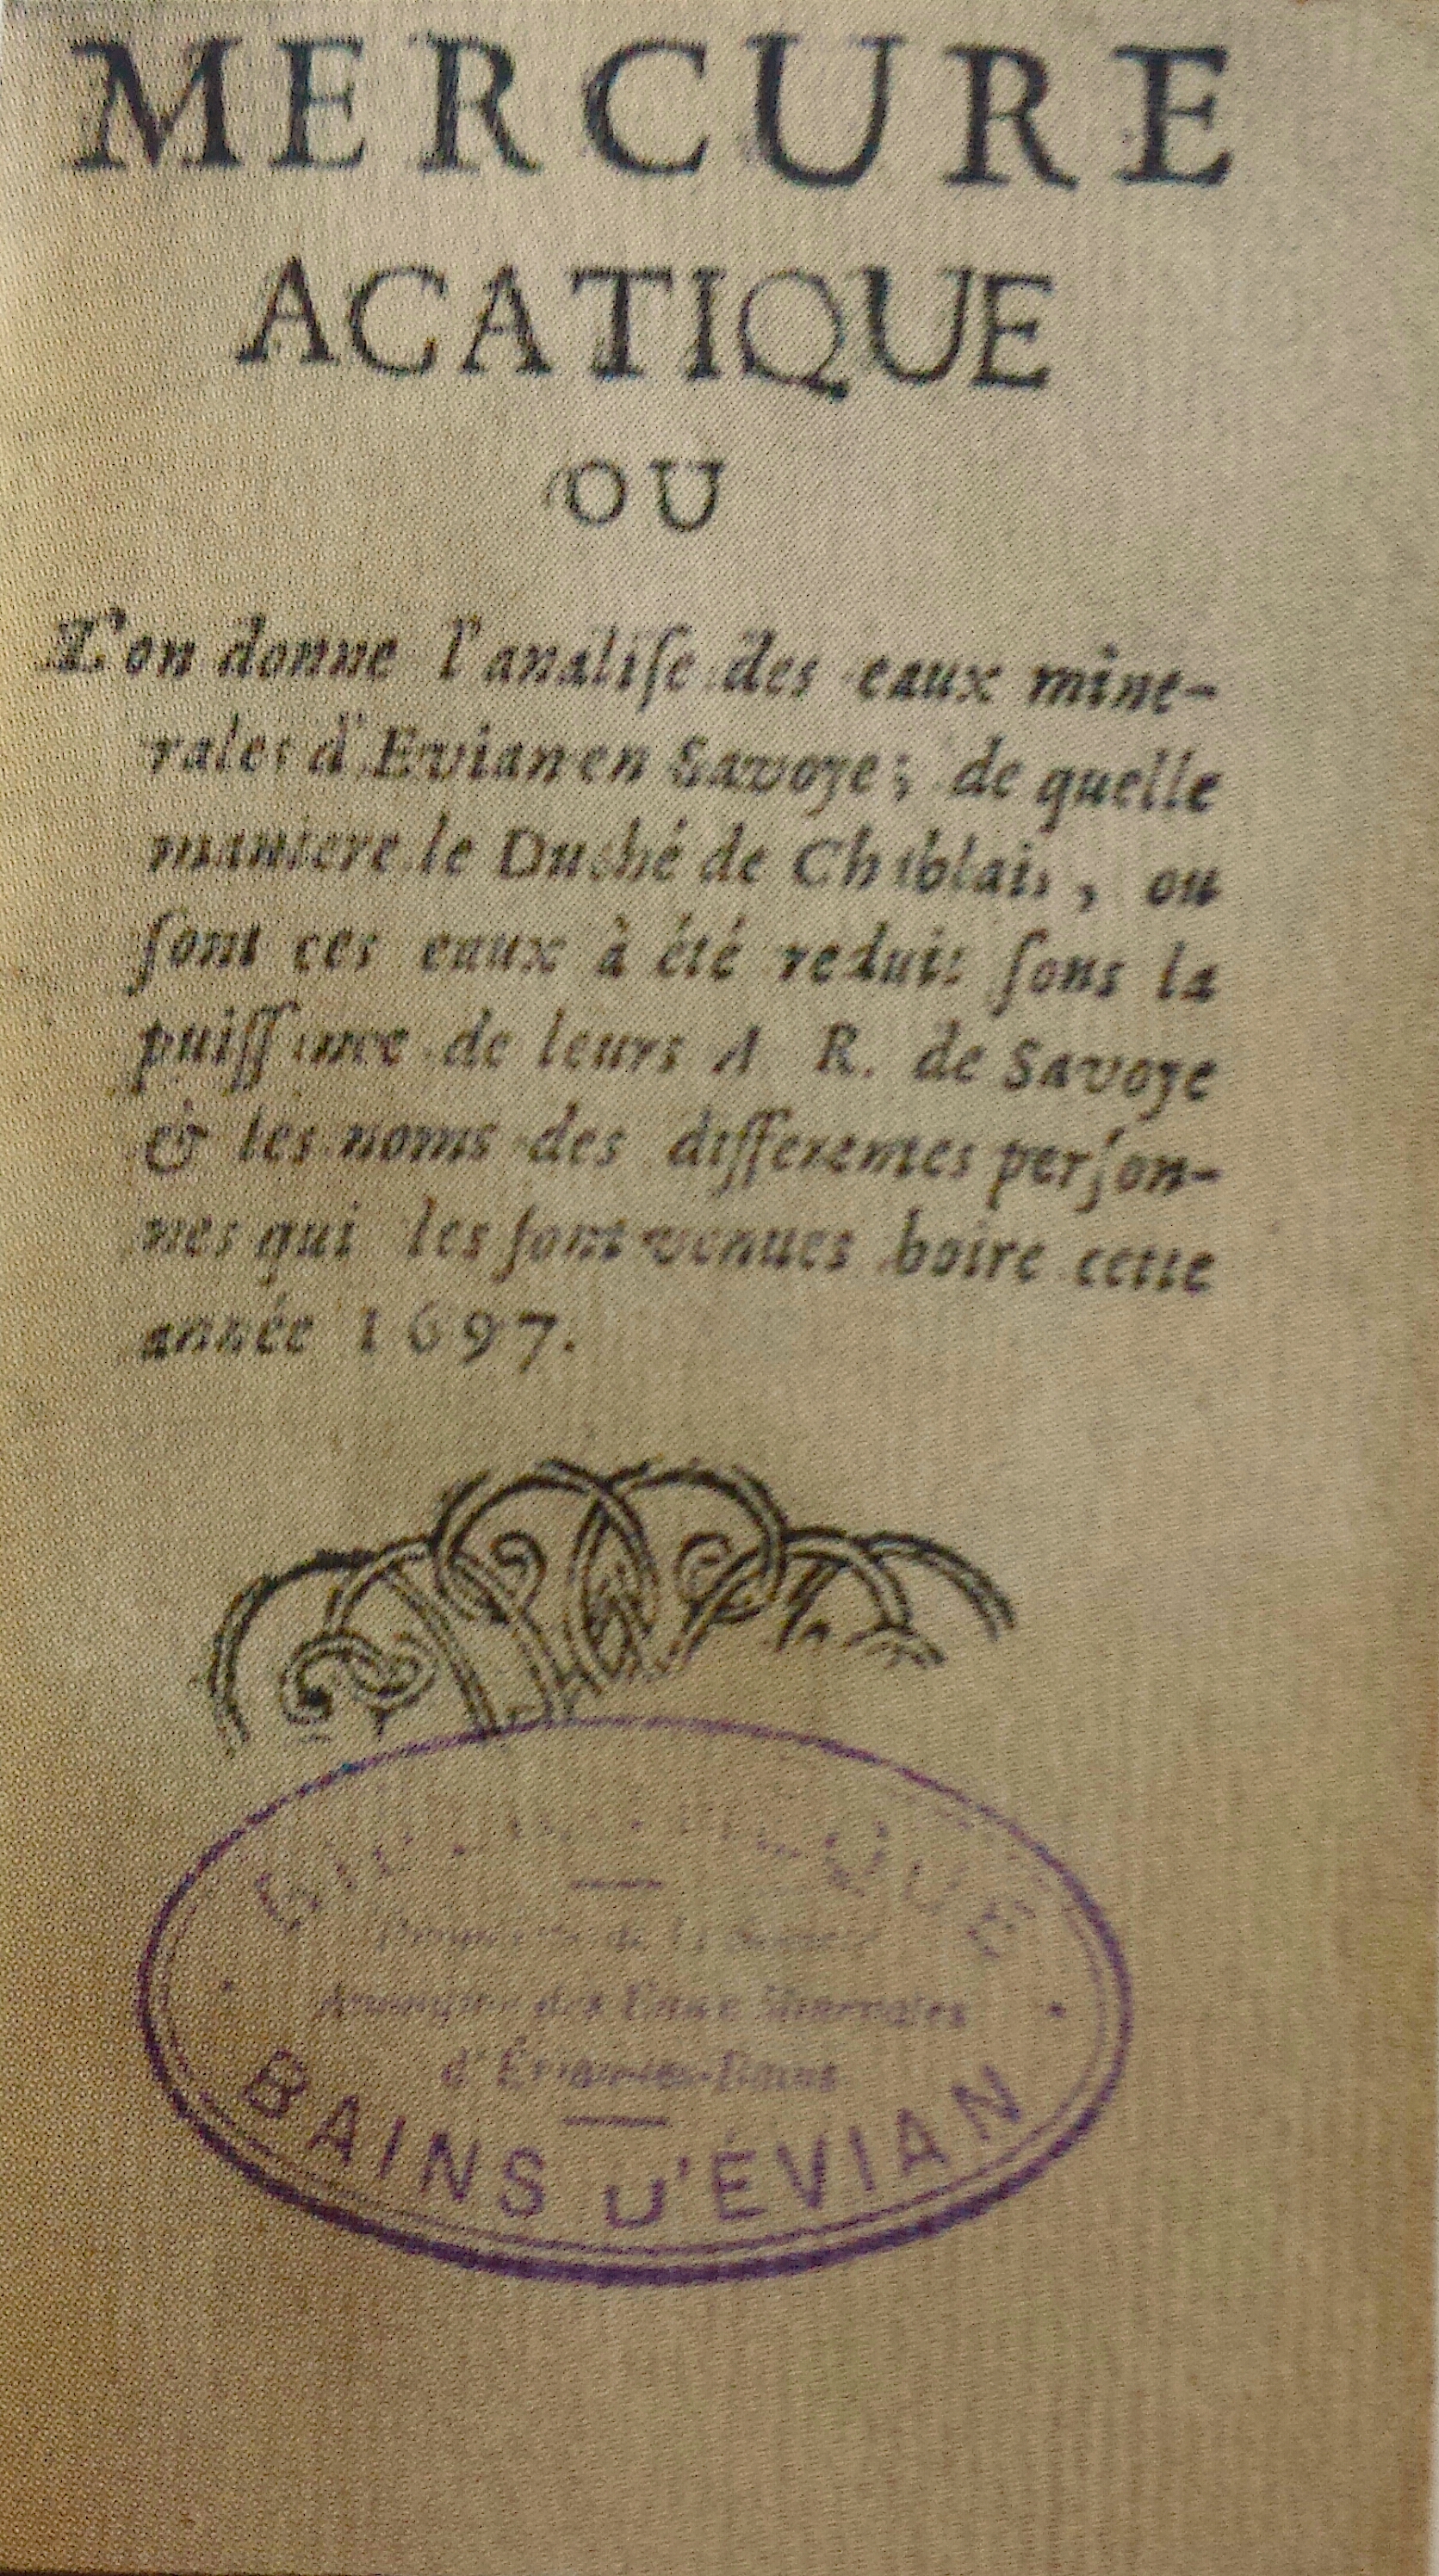 MERCURE
ACATIQUE
OU
L'on donne l'analiſe des eaux mine-
rales d'Evian en Savoye; de quelle
maniere le Duché de Chablais, ou
ſont ces eaux à été reduit ſous la
puiſſance de leurs A R. de Savoye
& les noms des differentes perſon-
nes qui les ſont venues boire cette
année 1697.
des Eaux Minerales
d'Évian-les-Bains
BAINS D'ÉVIAN